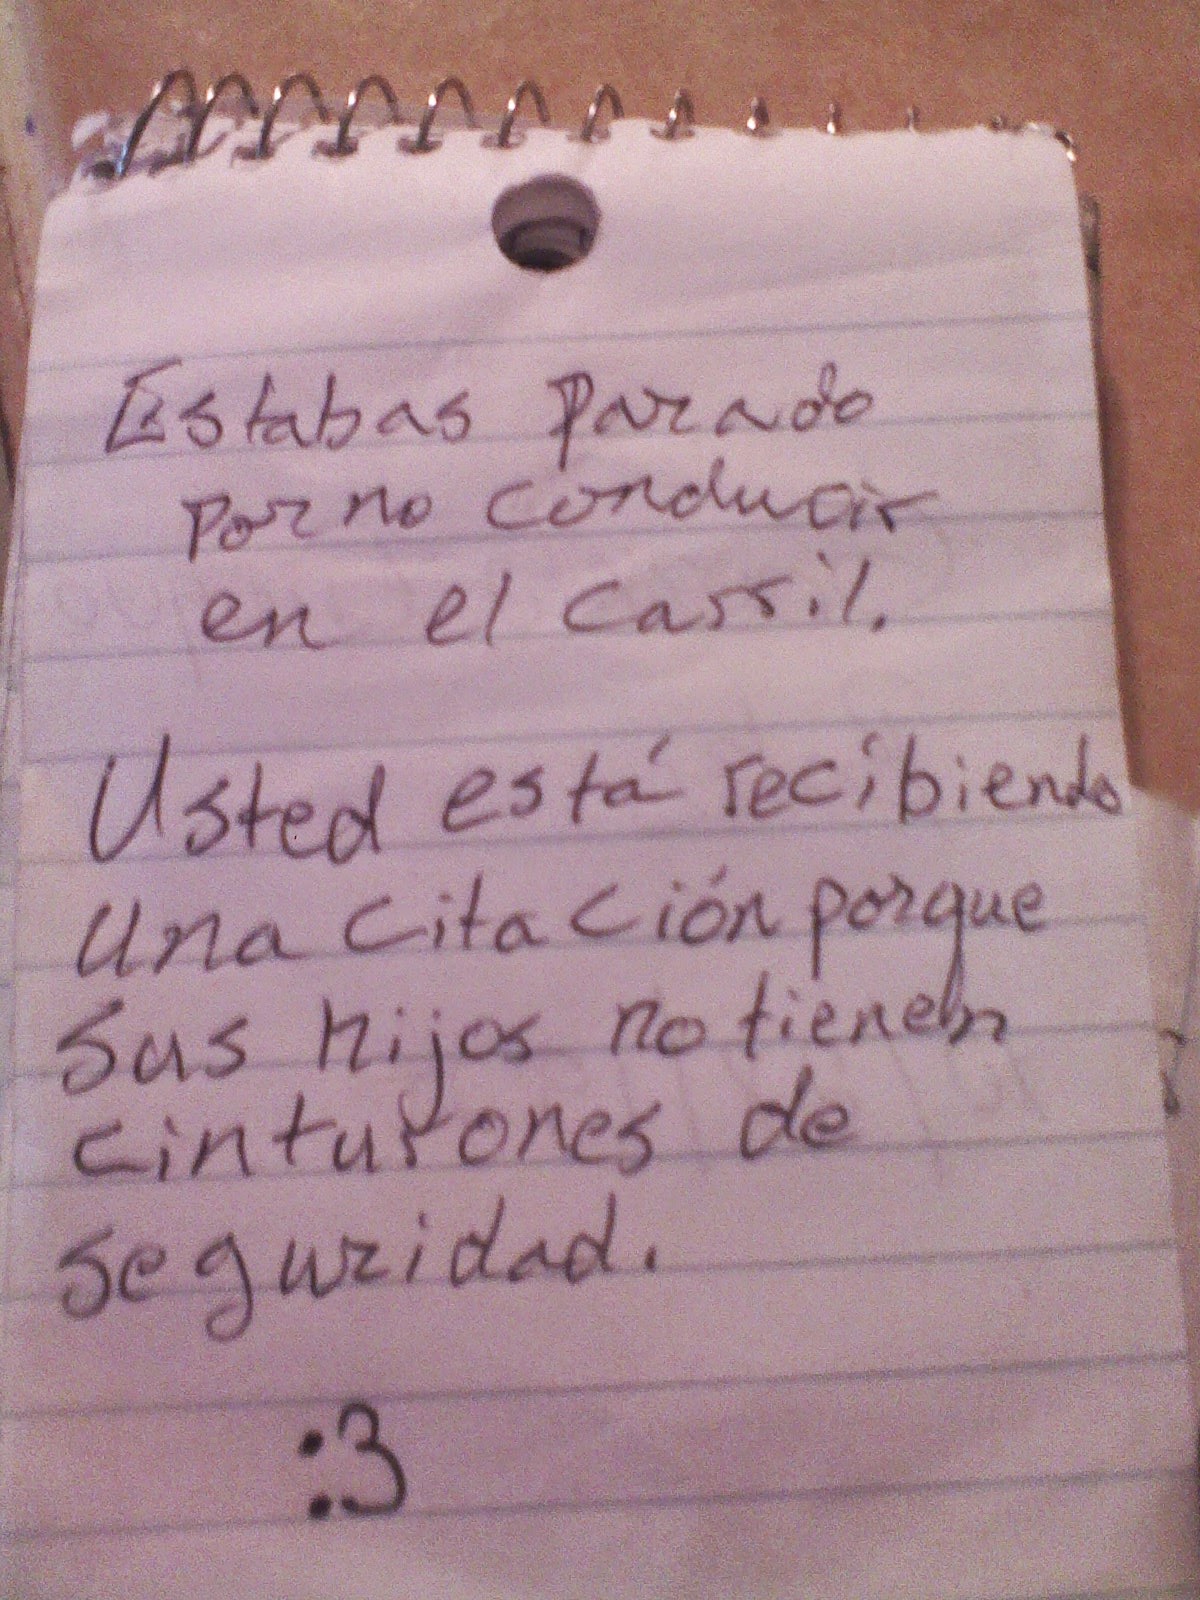 Estabas parado
por no conducir
en el carril.
Usted está recibiendo
una citación porque
sus hijos no tienen
cinturones de
seguridad.
:3